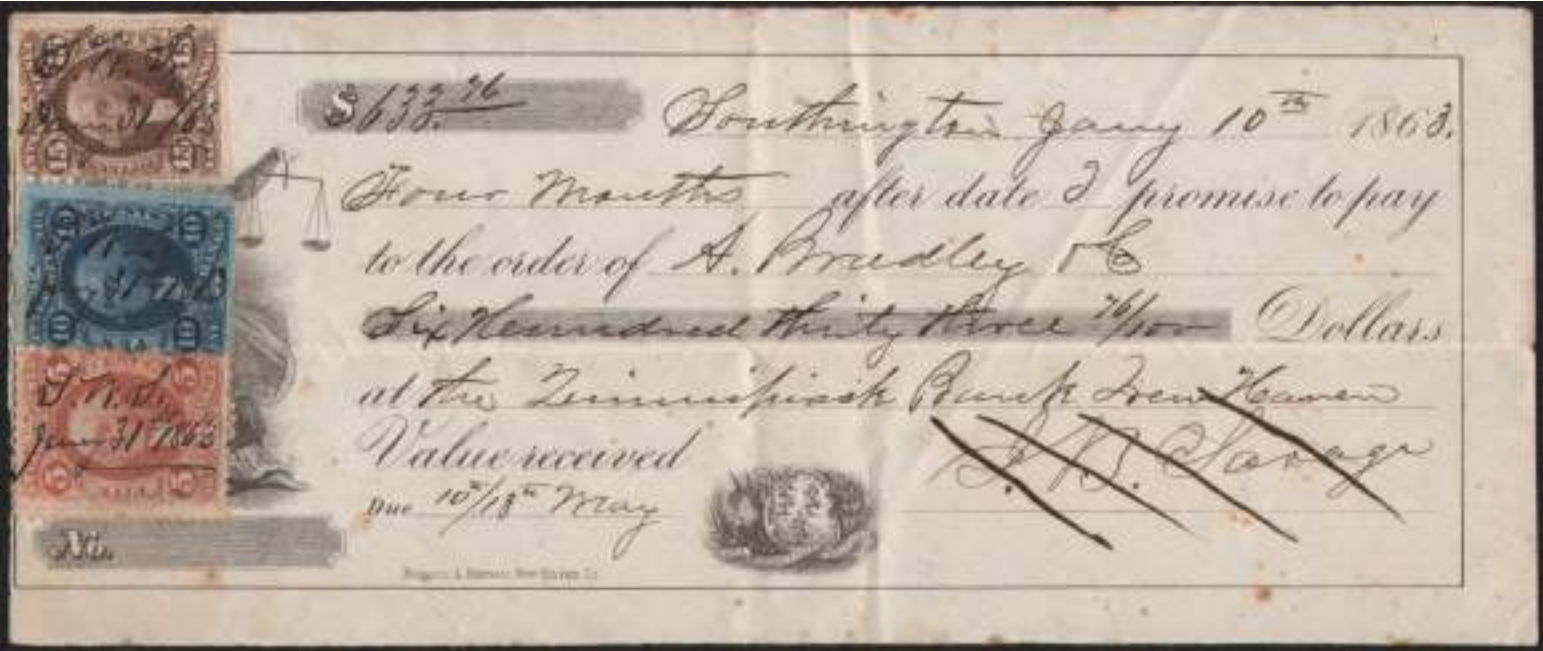 $633.76
Southington Jany 10th 1863.
Four Months after date I promise to pay
to the order of A. Bradley & C
Six Hundred thirty three 76/100 Dollars
at the Bank New Haven
Value received
S. B. Savage
Due 10th/13th May
No.
New Haven Ct
15
15
15
15
31
10
10
10
10
31 1863
5
5
Jany 31 1863
5
5